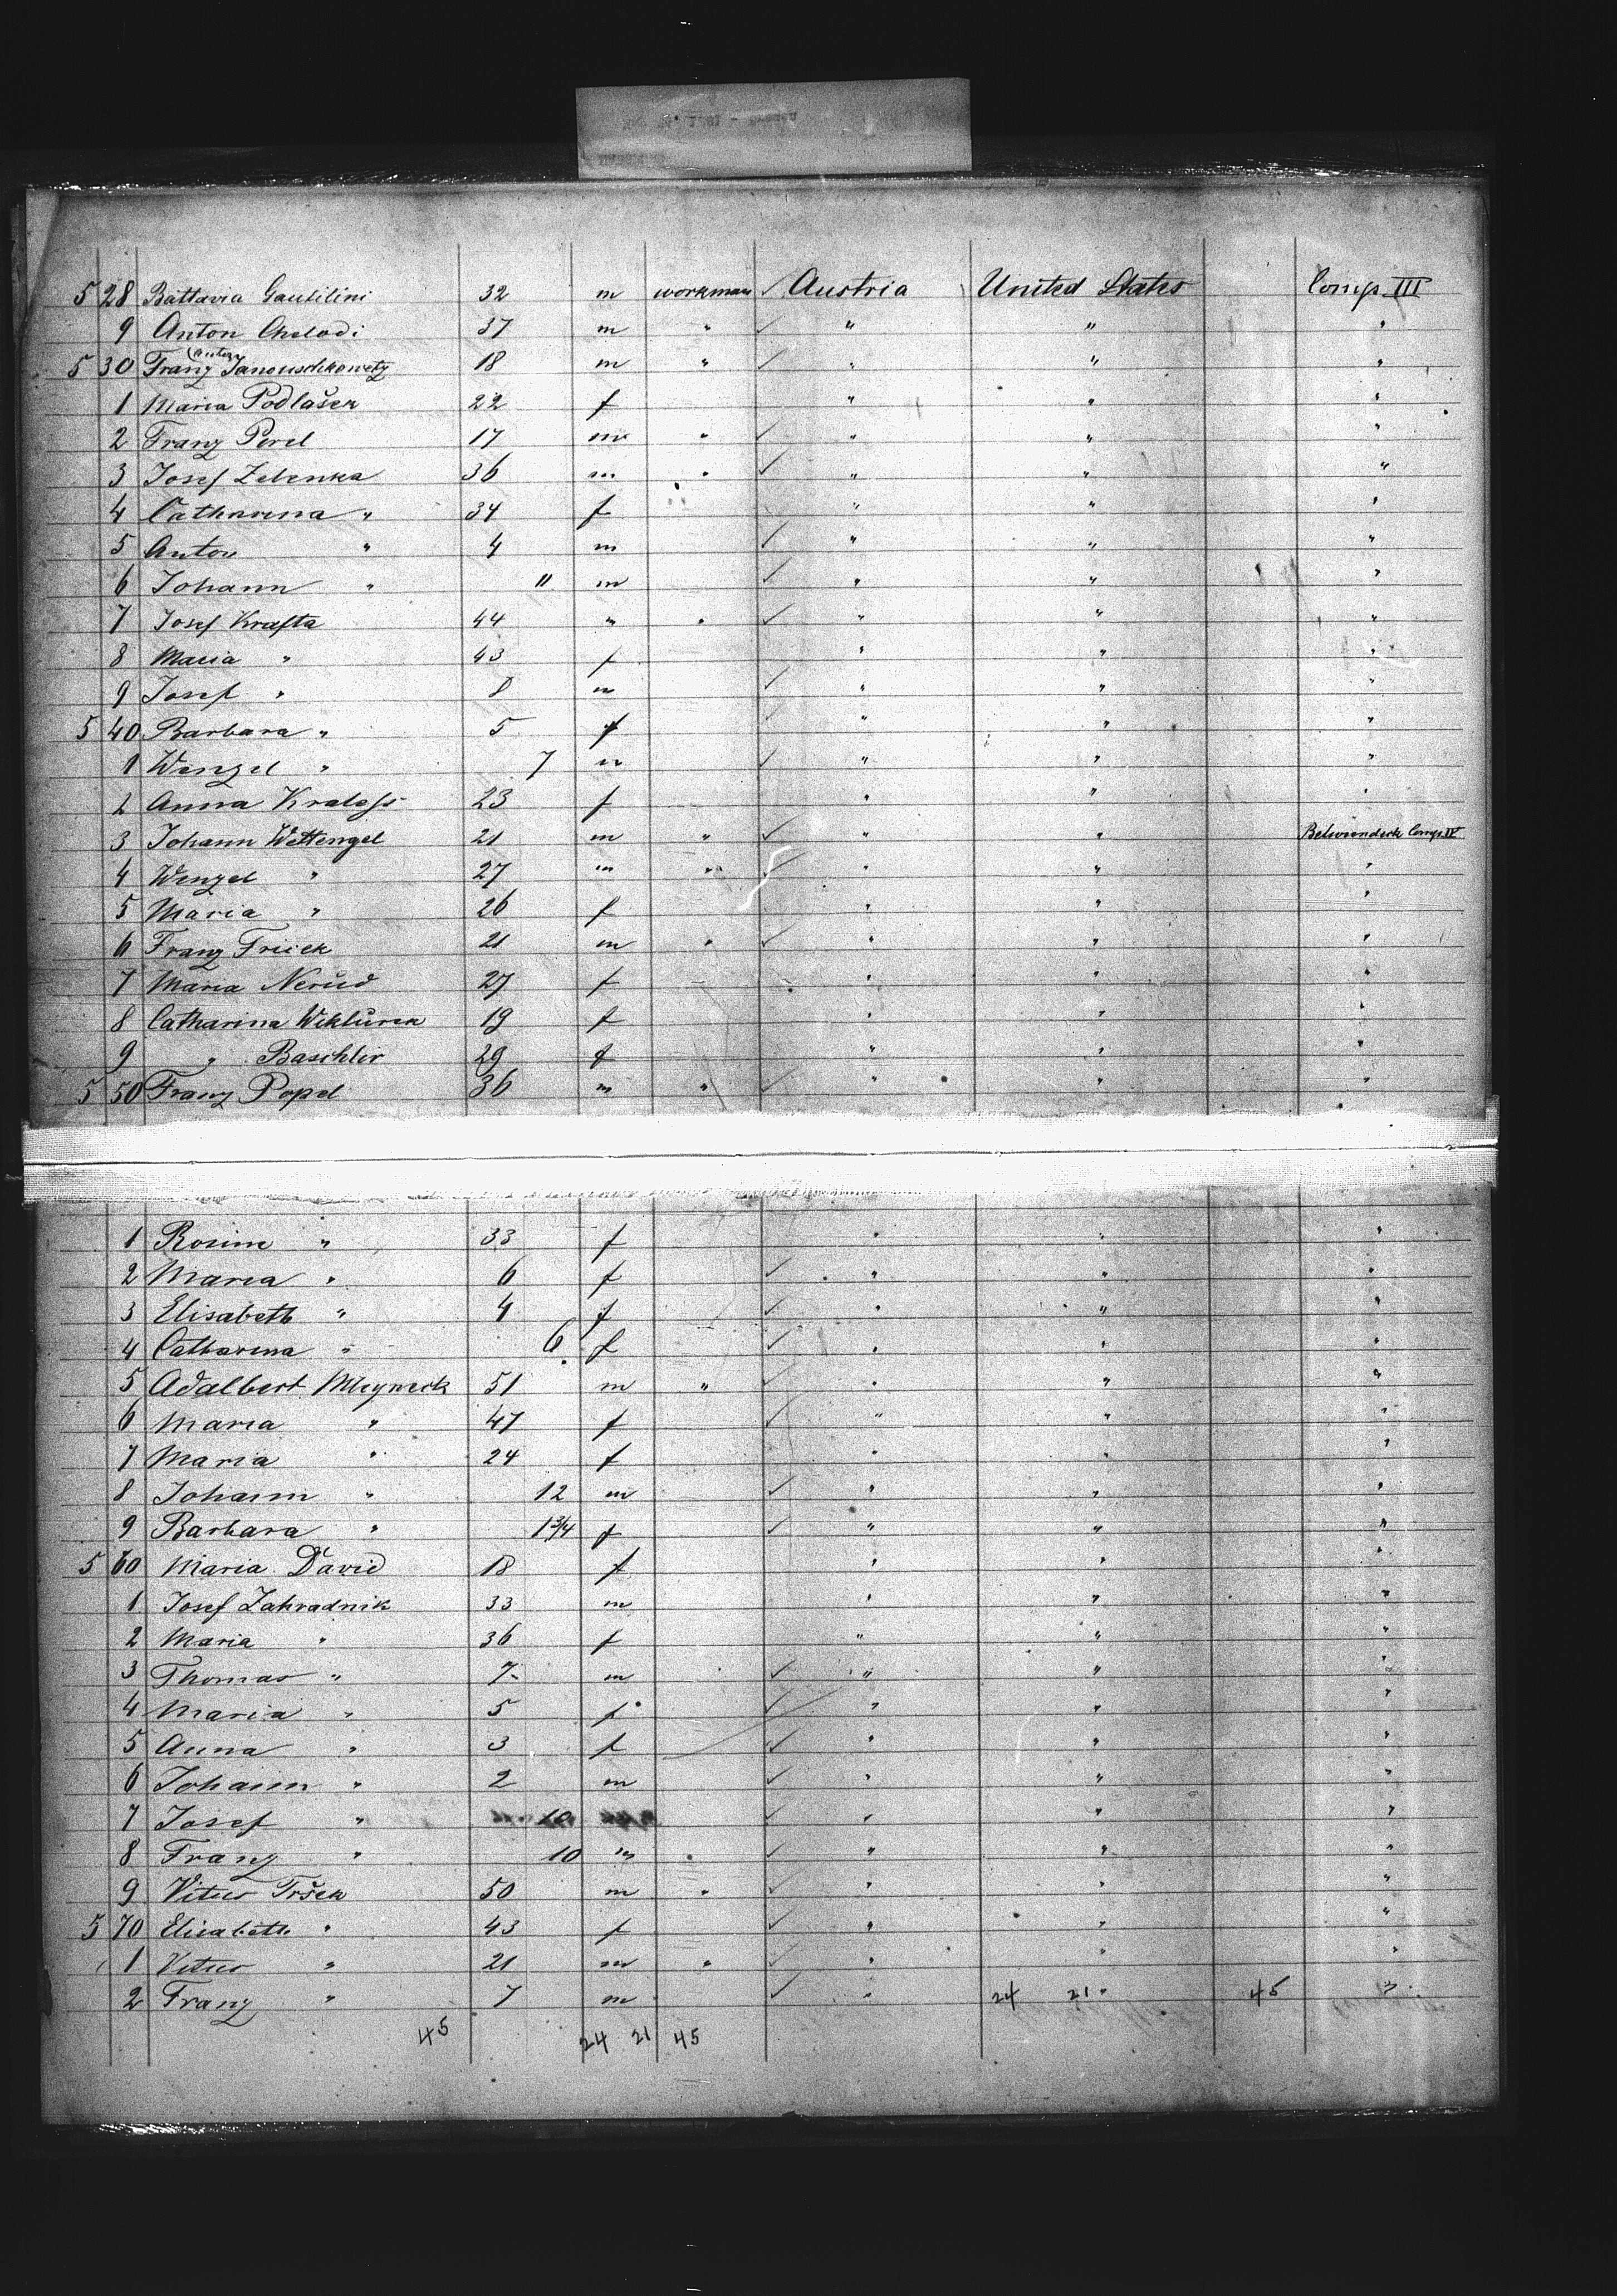 5 28 Battavia Gautilini 32 m workman ✓ Austria United States Comp. III
9 Anton Chelodi 37 m " ✓ " " "
5 30 Franz (Anton) Janouschkowetz 18 m " ✓ " " "
1 Maria Podlašek 22 f " " "
2 Franz Perel 17 m " ✓ " " "
3 Josef Zelenka 36 m " ✓ " " "
4 Catharina " 34 f " " "
5 Anton " 4 m ✓ " " "
6 Johann " 11 m ✓ " " "
7 Josef Krafta 44 " " ✓ " " "
8 Maria " 43 f " " "
9 Josef " 8 m ✓ " " "
5 40 Barbara " 5 f ✓ " " "
1 Wenzel " 7 m ✓ " " "
2 Anna 23 f " " "
3 Johann Wettengel 21 m " ✓ " " Betweendeck Comp. IV
4 Wenzel " 27 m " ✓ " " "
5 Maria " 26 f " " "
6 Franz 21 m " ✓ " " "
7 Maria Nerŭd 27 f " " "
8 Catharina 19 f " " "
9 " Baschlir 29 f " " "
5 50 Franz Popel 36 m " ✓ " " "
1 Rosine " 33 f " " "
2 Maria " 6 f ✓ " " "
3 Elisabeth " 4 f ✓ " " "
4 Catharina " 6 f ✓ " " "
5 Adalbert 51 m " ✓ " " "
6 Maria " 47 f ✓ " " "
7 Maria " 24 f " " "
8 Johann " 12 m ✓ " " "
9 Barbara " 1 3/4 f ✓ " " "
5 60 Maria David 18 f " " "
1 Josef Zahradnik 33 m " " "
2 Maria " 36 f " " "
3 Thomas " 7 m ✓ " " "
4 Maria " 5 f ✓ " " "
5 Anna " 3 f ✓ " " "
6 Johann " 2 m ✓ " " "
7 Josef " ✓ " " "
8 Franz " 10 m " ✓ " " "
9 Vitus Tršek 50 m " ✓ " " "
5 70 Elisabeth " 43 f ✓ " " "
1 Vitus " 21 m " ✓ " " "
2 Franz " 7 m ✓ " 24 21 " 45 "
45 24 21 45